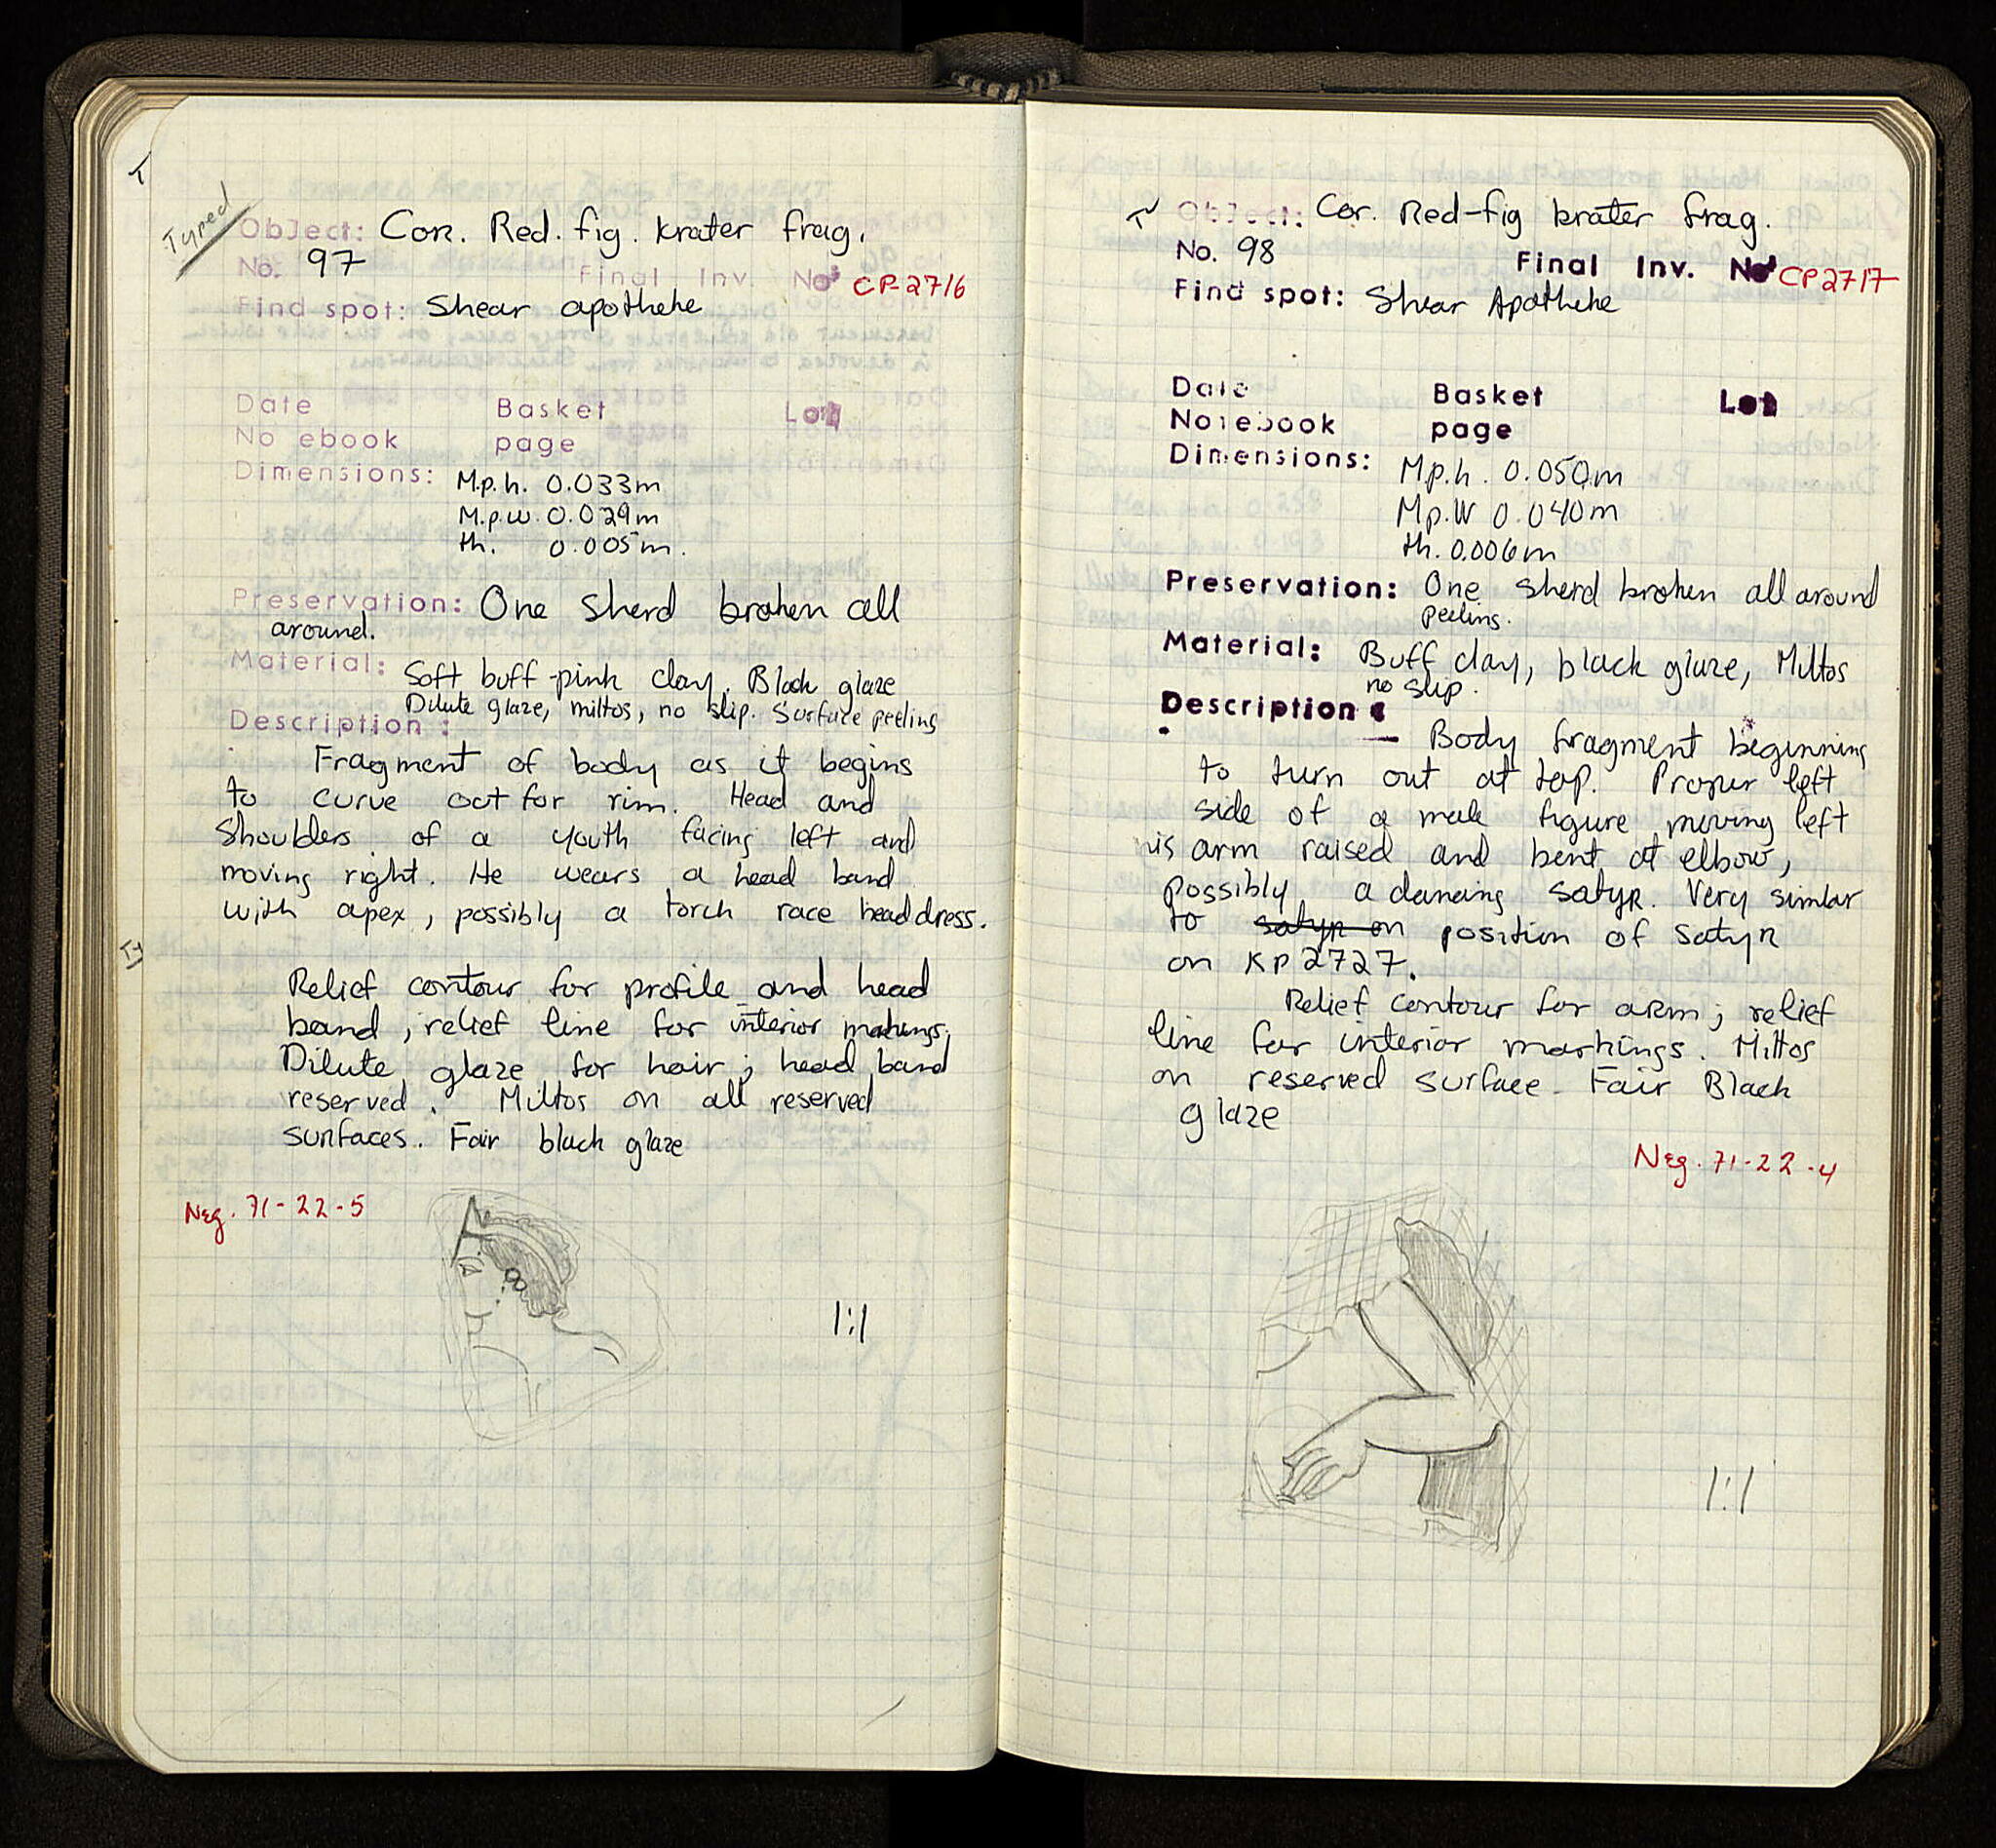 T
Typed
Object: Cor. Red. fig. krater frag.
No. 97 Final Inv. No: CP-2716
Find spot: Shear apotheke
Date Basket Lot
No ebook page
Dimensions: M.p.h. 0.033m
M.p.w. 0.029m
th. 0.005m.
Preservation: One sherd broken all
around.
Material: Soft buff-pink clay. Black glaze
Dilute glaze, miltos, no slip. Surface peeling
Description:
Fragment of body as it begins
to curve out for rim. Head and
shoulders of a youth facing left and
moving right. He wears a head band
with apex, possibly a torch race headdress.
Ty
Relief contour for profile and head
band, relief line for interior markings.
Dilute glaze for hair; head band
reserved. Miltos on all reserved
surfaces. Fair black glaze
Neg. 71-22-5
1:1
T Object: Cor. Red-fig krater frag.
No. 98 Final Inv. No: CP2717
Find spot: Shear Apotheke
Date Basket Lot
Notebook page
Dimensions: Mp.h. 0.050m
Mp.W 0.040m
th. 0.006m
Preservation: One sherd broken all around
peeling.
Material: Buff clay, black glaze, Miltos
no slip.
Description:
Body fragment beginning
to turn out at top. Proper left
side of a male figure moving left
his arm raised and bent at elbow,
possibly a dancing satyr. Very similar
to satyr on position of satyr
on KP2727.
Relief contour for arm; relief
line for interior markings. Miltos
on reserved surface. Fair Black
glaze
Neg. 71-22-4
1:1